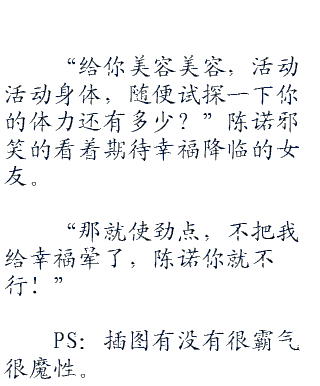 “给你美容美容，活动
活动身体，随便试探一下你
的体力还有多少？”陈诺邪
笑的看着期待幸福降临的女
友。
“那就使劲点，不把我
给幸福晕了，陈诺你就不
行！”
PS：插图有没有很霸气
很魔性。